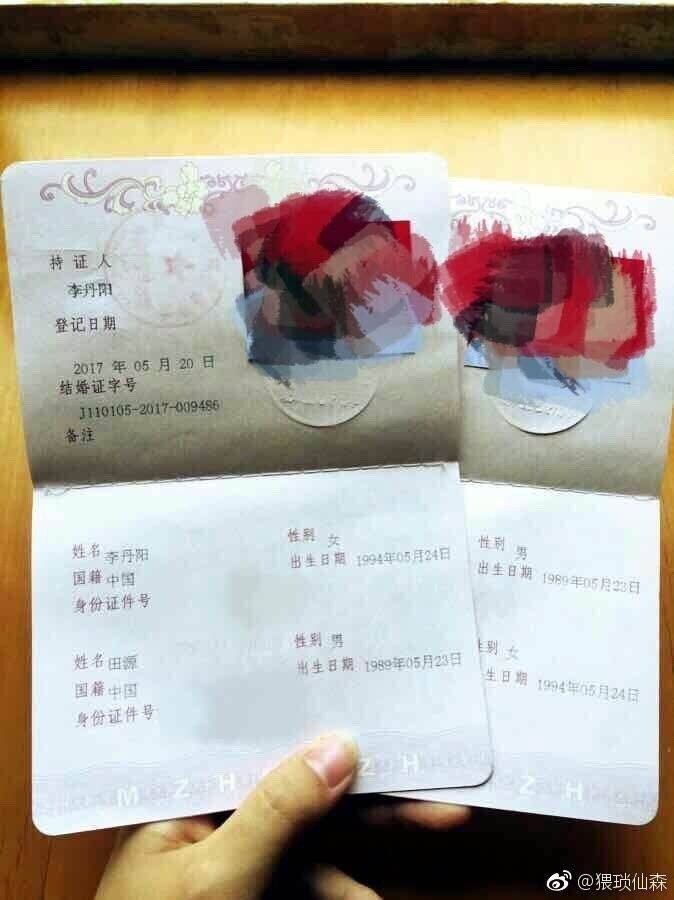 持证人
李丹阳
登记日期
2017 年 05 月 20 日
结婚证字号
J110105-2017-009486
备注
姓名 李丹阳 性别 女
国籍 中国 出生日期 1994年05月24日
身份证件号
姓名 田源 性别 男
国籍 中国 出生日期 1989年05月23日
身份证件号
M Z H Z H
性别 男
出生日期 1989年05月23日
性别 女
出生日期 1994年05月24日
Z H
@猥琐仙森